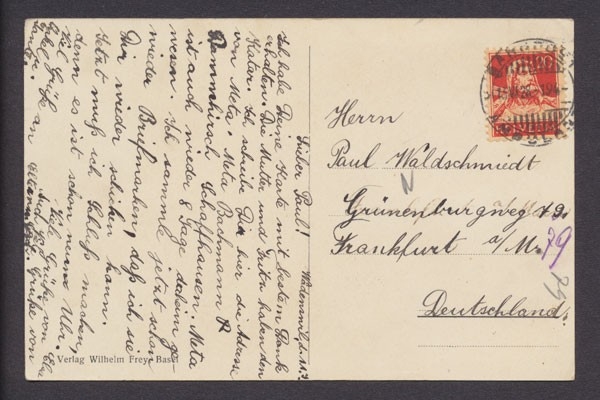 Wädenswil d. 11.7
Lieber Paul!
Ich habe Deine Karte mit bestem Dank
erhalten. Die Mutter und Frita haben den
Kater. Ich schreibe Dir hier die Adresse
von Meta. Meta Bachmann
Schaffhausen. Meta
ist auch wieder 8 Tage daheim ge-
wesen. Ich sammle jetzt schon
wieder Briefmarken, daß ich sie
Dir wieder schicken kann.
Jetzt muß ich Schluß machen,
denn es ist schon neun Uhr.
Viele Grüße von
Viel Grüße
Grüße an
Grüße von
Verlag Wilhelm Frey, Basel
Herrn
Paul Waldschmidt
Grünenburgweg 79.
Frankfurt a/M.
79
Deutschland.